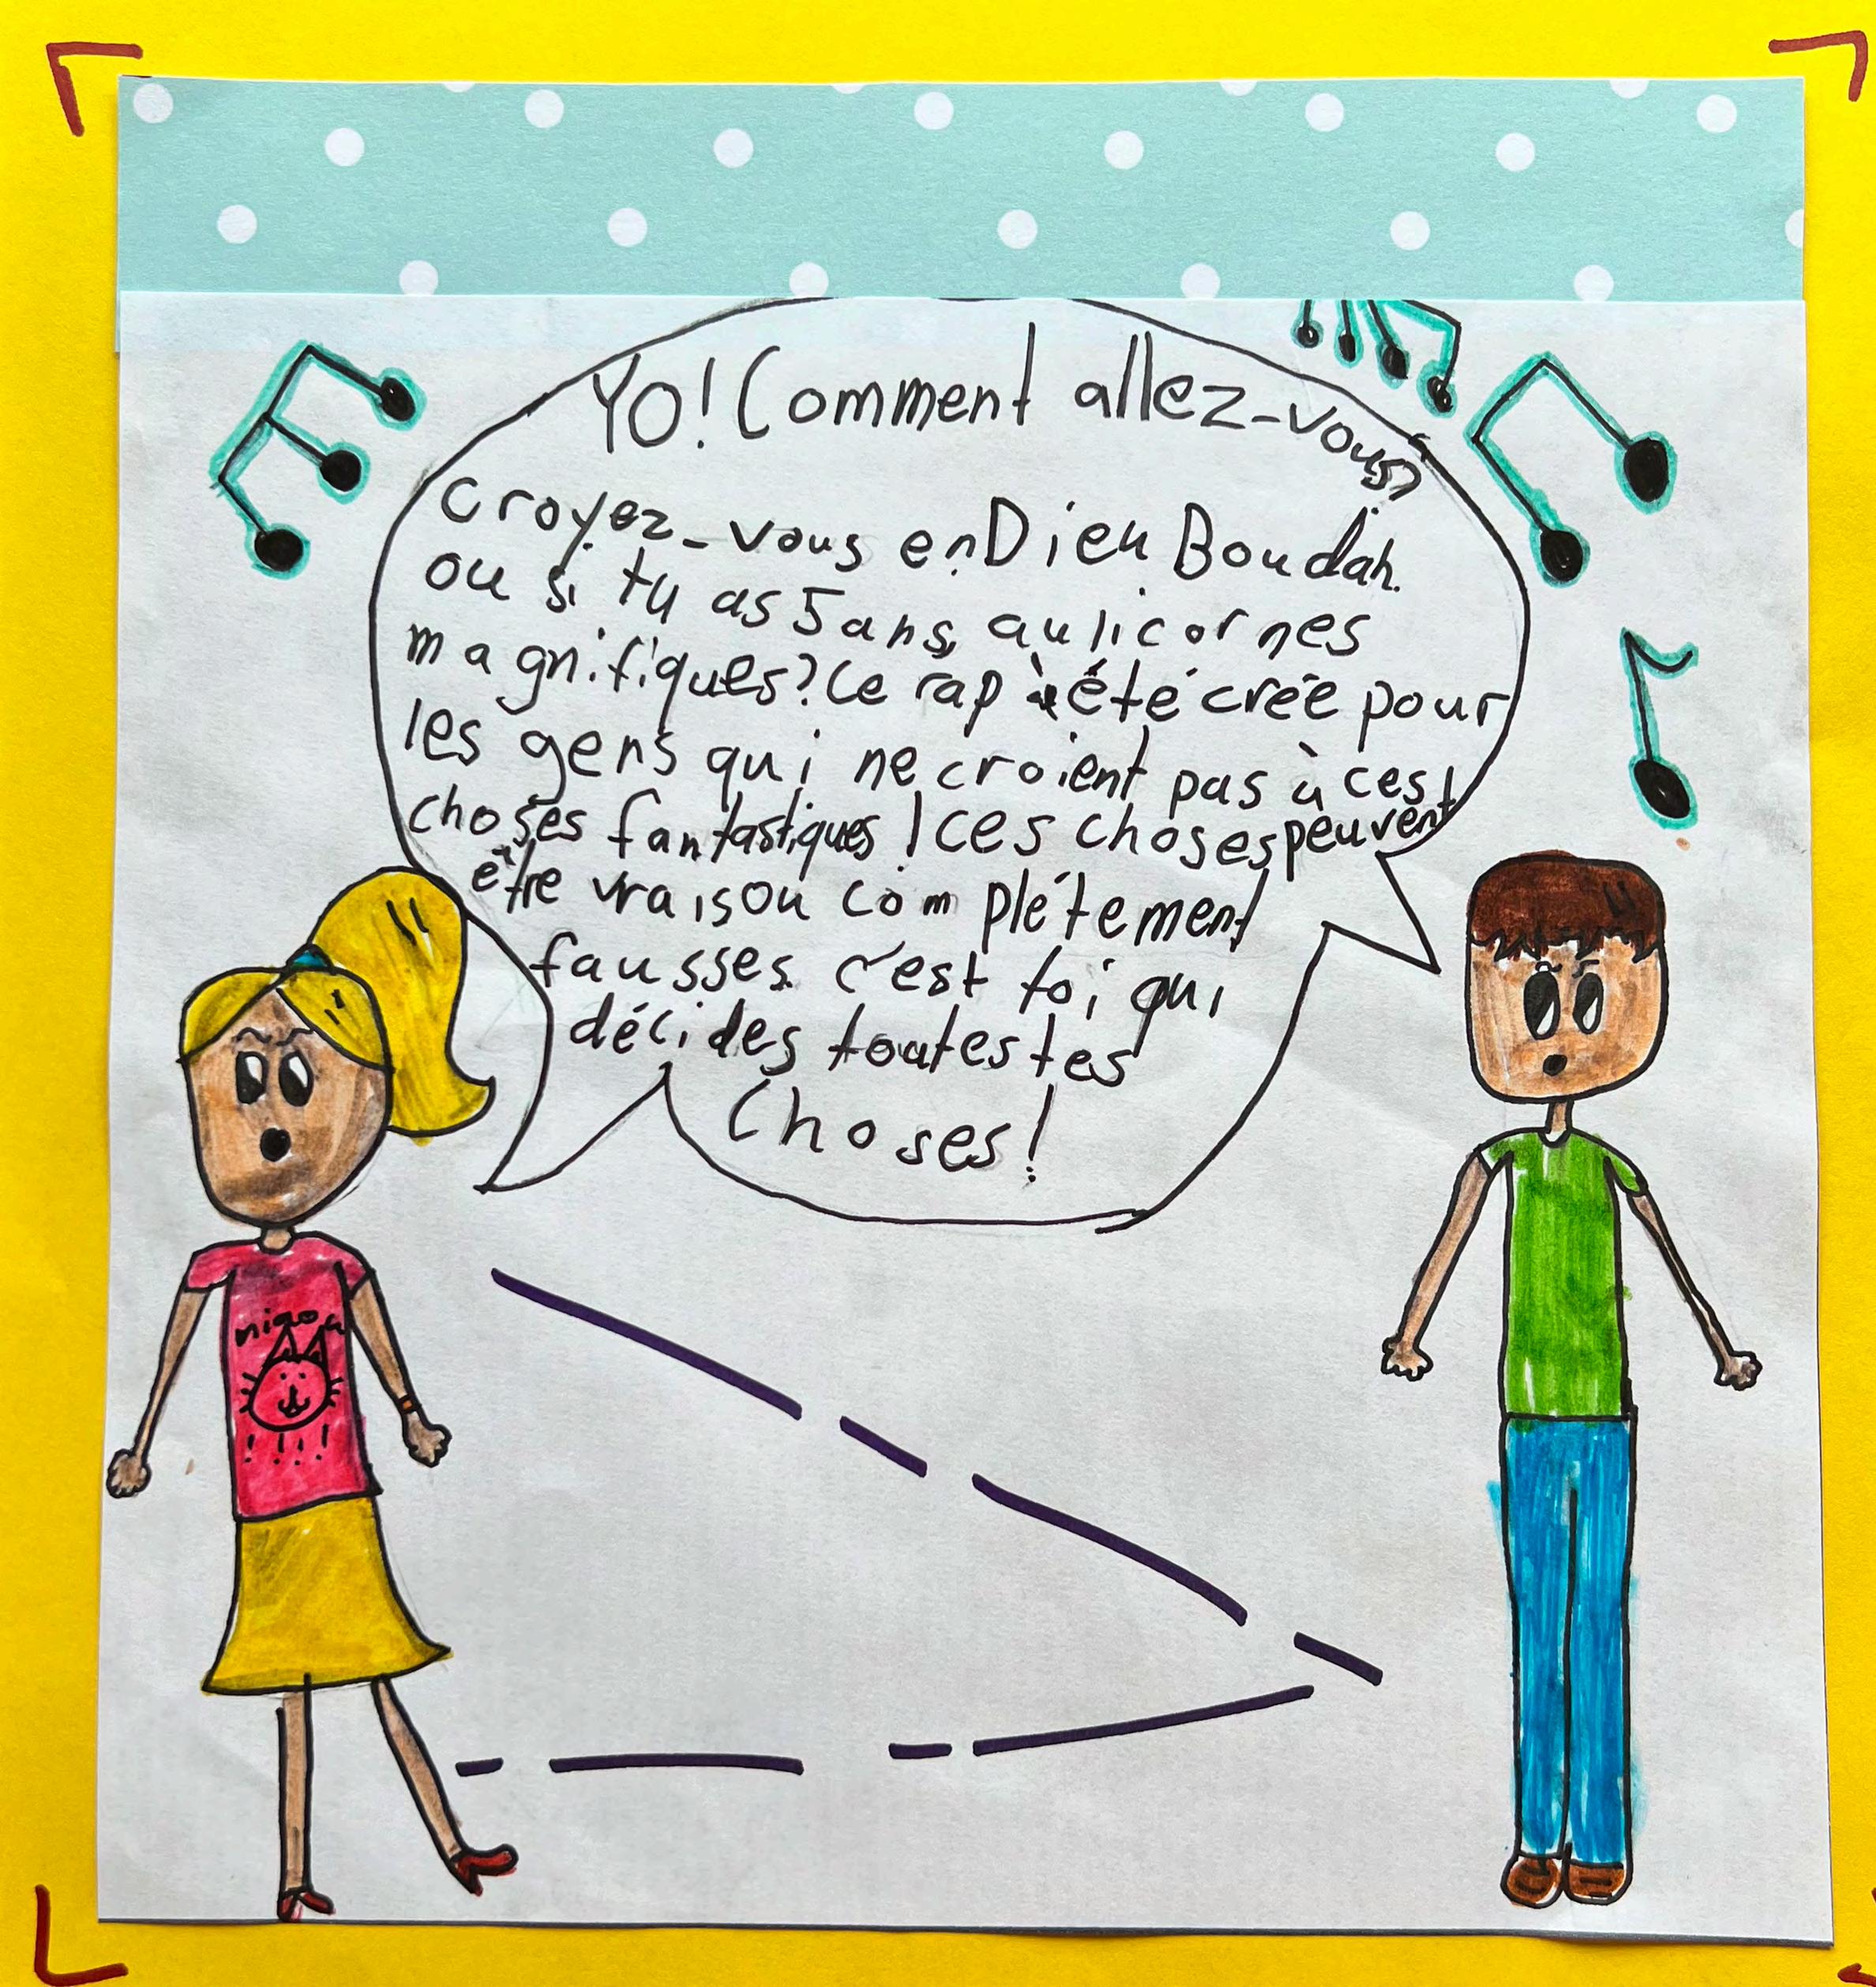 Yo! Comment allez-vous?
Croyez-vous en Dieu Boudah
ou si tu as 5 ans, au licornes
magnifiques? Ce rap à été créé pour
les gens qui ne croient pas à ces
choses fantastiques! Ces choses peuvent
être vrais ou complétement
fausses. c'est toi qui
décides toutes tes
choses!